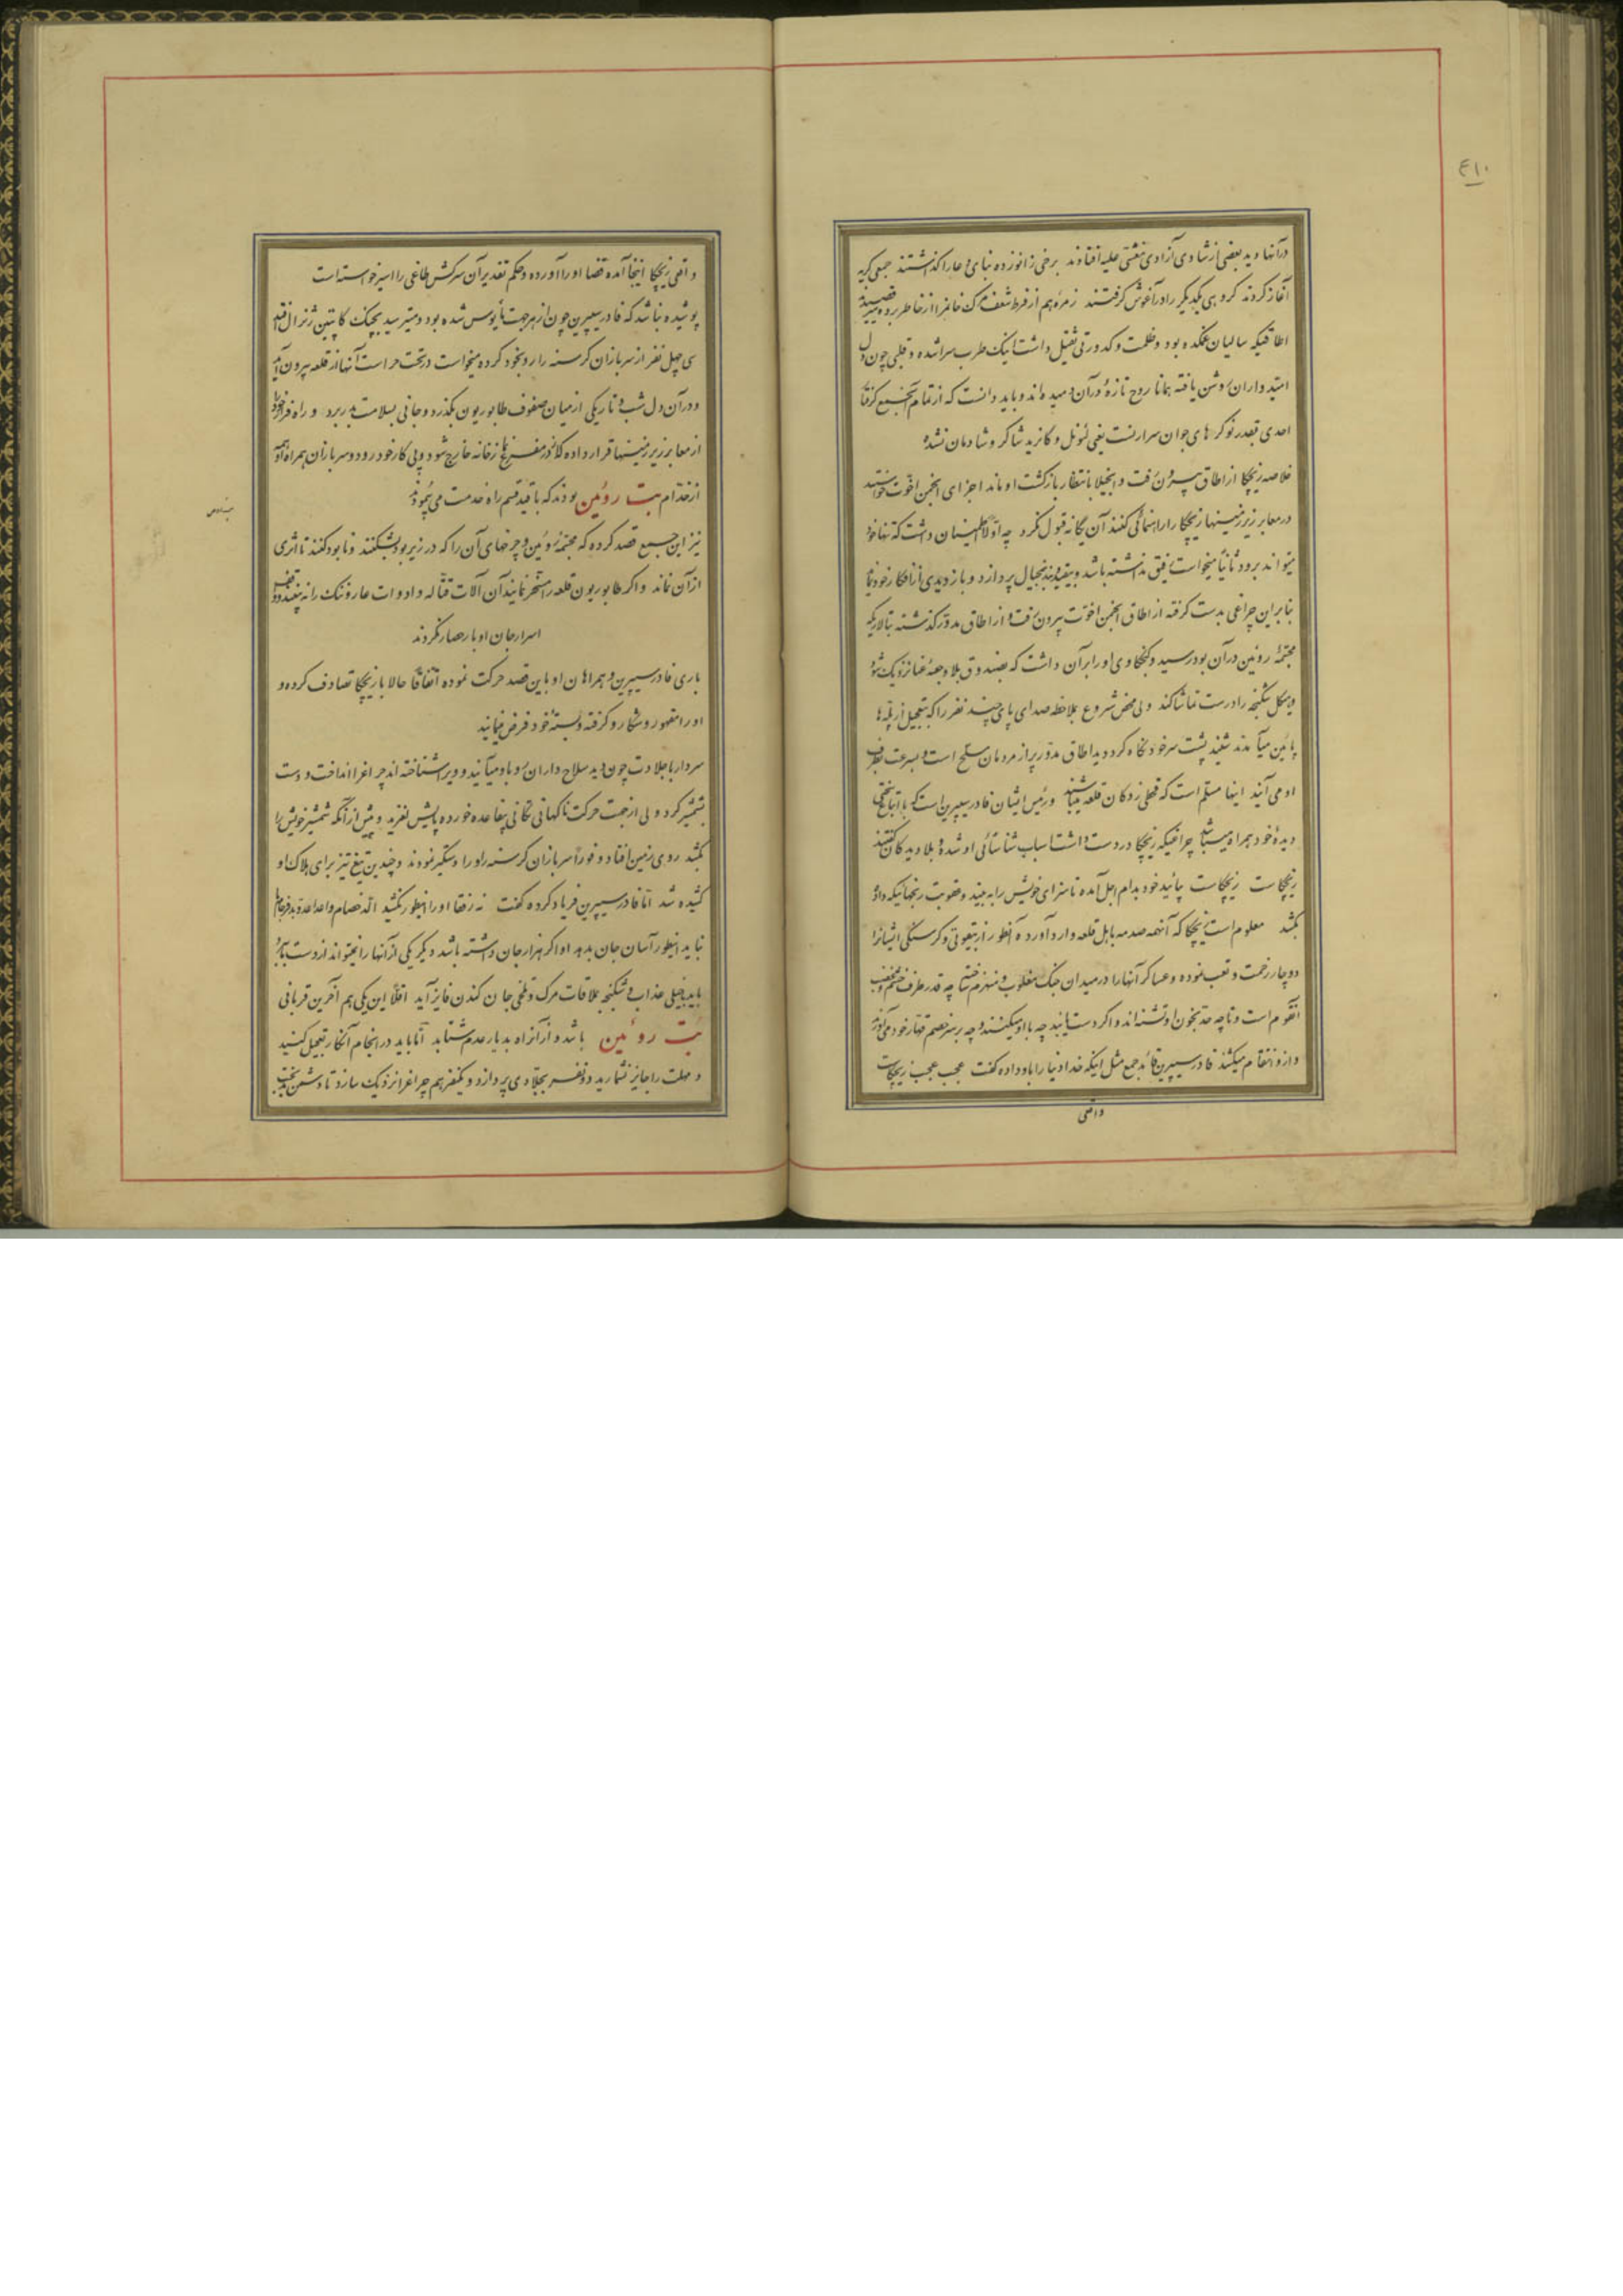 ٤١٠
در آنها دید بعضی از شادی آزادی مغشی علیه افتادند برخی زانو زده بنای دعا را گذاشتند جمعی گریه
آغاز کردند گروهی یکدیگر را در آغوش گرفتند زمره هم از فرط شعف مرگ خانمرا از خاطر برده
اطاقیکه سالیان غمکده بود و ظلمت و کدورتی ثقیل داشت اینک طرب سرا شده و قلبی چون دل
امیدواران روشن یافته همانا روح تازهٔ در آن دمیده‌اند و باید دانست که از تمام آنجمع
احدی بقدر نوکرهای جوان سرارنست یعنی لئونل و کانرید شاکر و شادمان نشده
خلاصه ریچکا از اطاق بیرون رفت و انجیلا بانتظار بازگشت او ماند اجزای انجمن اخوت خواستند
در معابر زیر زمینها ریچکا را راهنمائی کنند آن یگانه قبول نکرد چه اولا اطمینان داشت که تنها خود
میتواند برود ثانیا میخواست رفیق نداشته باشد و بخیال پردازد و بازدیدی از افکار خود نماید
بنابراین چراغی بدست گرفته از اطاق انجمن اخوت بیرون رفت و از اطاق مدور گذشته بتالاریکه
مجسمهٔ روئین در آن بود رسید و کنجکاوی او را بر آن داشت که بصندوق بلا و جعبهٔ عنا نزدیک شود
و هیکل شکنجه را درست تماشا کند ولی محض شروع بملاحظه صدای پای چند نفر را که بتعجیل از پله‌ها
پائین میآمدند شنید پشت سر خود نگاه کرد دید اطاق مدور پر از مردمان مسلح است و بسرعت بطرف
او می‌آیند اینها مسلم است که قحطی زدگان قلعه میباشند و رئیس ایشان فادر سیپرین است که با اتباع سختی
دیدهٔ خود همراه میباشد چراغیکه ریچکا در دست داشت اسباب شناسائی او شده و بلا دیدگان گفتند
ریچکاست ریچکاست بپای خود بدام اجل آمده تا سزای خویش را به بیند و عقوبت رنجهائیکه داده
بکشد معلوم است ریچکا که آنهمه صدمه باهل قلعه وارد آورده و آنطور از بیقوتی و گرسنگی ایشانرا
دوچار زحمت و تعب نموده و عساکر آنها را در میدان جنگ مغلوب و منهزم ساخته چه قدر طرف خشم و غضب
آنقوم است و تا چه حد بخون او تشنه‌اند و اگر دست یابند چه با او میکنند و چه بر سر خصم قهار خود می‌آورند
و از او انتقام میکشند فادر سیپرین قائد جمع مثل اینکه خدا دنیا را باو داده گفت عجب عجب ریچکاست
واقعی
واقعی ریچکا اینجا آمده قضا او را آورده و حکم تقدیر آن سرکش طاغی را اسیر خواسته است
پوشیده نباشد که فادر سیپرین چون از هر جهت مأیوس شده بود و میترسید بچنگ کاپیتین ژنرال افتد
سی چهل نفر از سربازان گرسنه را رو بخود کرده میخواست در تحت حراست آنها از قلعه بیرون آید
و در آن دل شب و تاریکی از میان صفوف طابوریون بگذرد و جانی بسلامت بدر برد و راه فرار خود را
از معابر زیر زمینها قرار داده که از خانه خارج شود و پی کار خود رود و سربازان همراه او همه
از خدام بت روئین بودند که با قید قسم راه خدمت می‌پیمودند
نیز این جمع قصد کرده که مجسمهٔ روئین و چرخهای آن را که در زیر بود بشکنند و نابود کنند تا اثری
از آن نماند و اگر طابوریون قلعه را مسخر نمایند آن آلات قتاله و ادوات عار و ننگ را نه بینند
اسرار جان اوبار حصار نگردند
باری فادر سیپرین و همراهان او باین قصد حرکت نموده اتفاقا حالا با ریچکا تصادف کرده و
او را مقهور و شکار و گرفته و بستهٔ خود فرض مینمایند
سردار با جلادت چون دید سلاح داران رو باو میآیند و ویرا شناخته‌اند چراغ را انداخت و دست
بشمشیر کرد ولی از جهت حرکت ناگهانی تکانی بیقاعده خورده پایش لغزید و پیش از آنکه شمشیر خویش را
بکشد روی زمین افتاد و فورا سربازان گرسنه او را دستگیر نمودند و چندین تیغ تیز برای هلاک او
کشیده شد اما فادر سیپرین فریاد کرده گفت نه رفقا او را اینطور نکشید الد خصام و اعدا عدو بدفرجام ما
نباید اینطور آسان جان بدهد او اگر هزار جان داشته باشد دیگر یکی از آنها را نمیتواند از دست ما ببرد
باید خیلی عذاب و شکنجه بملاقات مرگ و تلخی جان کندن فایز آید اقلا این یکی هم آخرین قربانی
بت روئین باشد و از آنراه بدیار عدم شتابد اما باید در انجام آنکار تعجیل کنید
و مهلت را جایز نشمارید دو نفر بجلادی پردازد و یکنفر هم چراغرا نزدیک سازد تا دشمن بدبخت